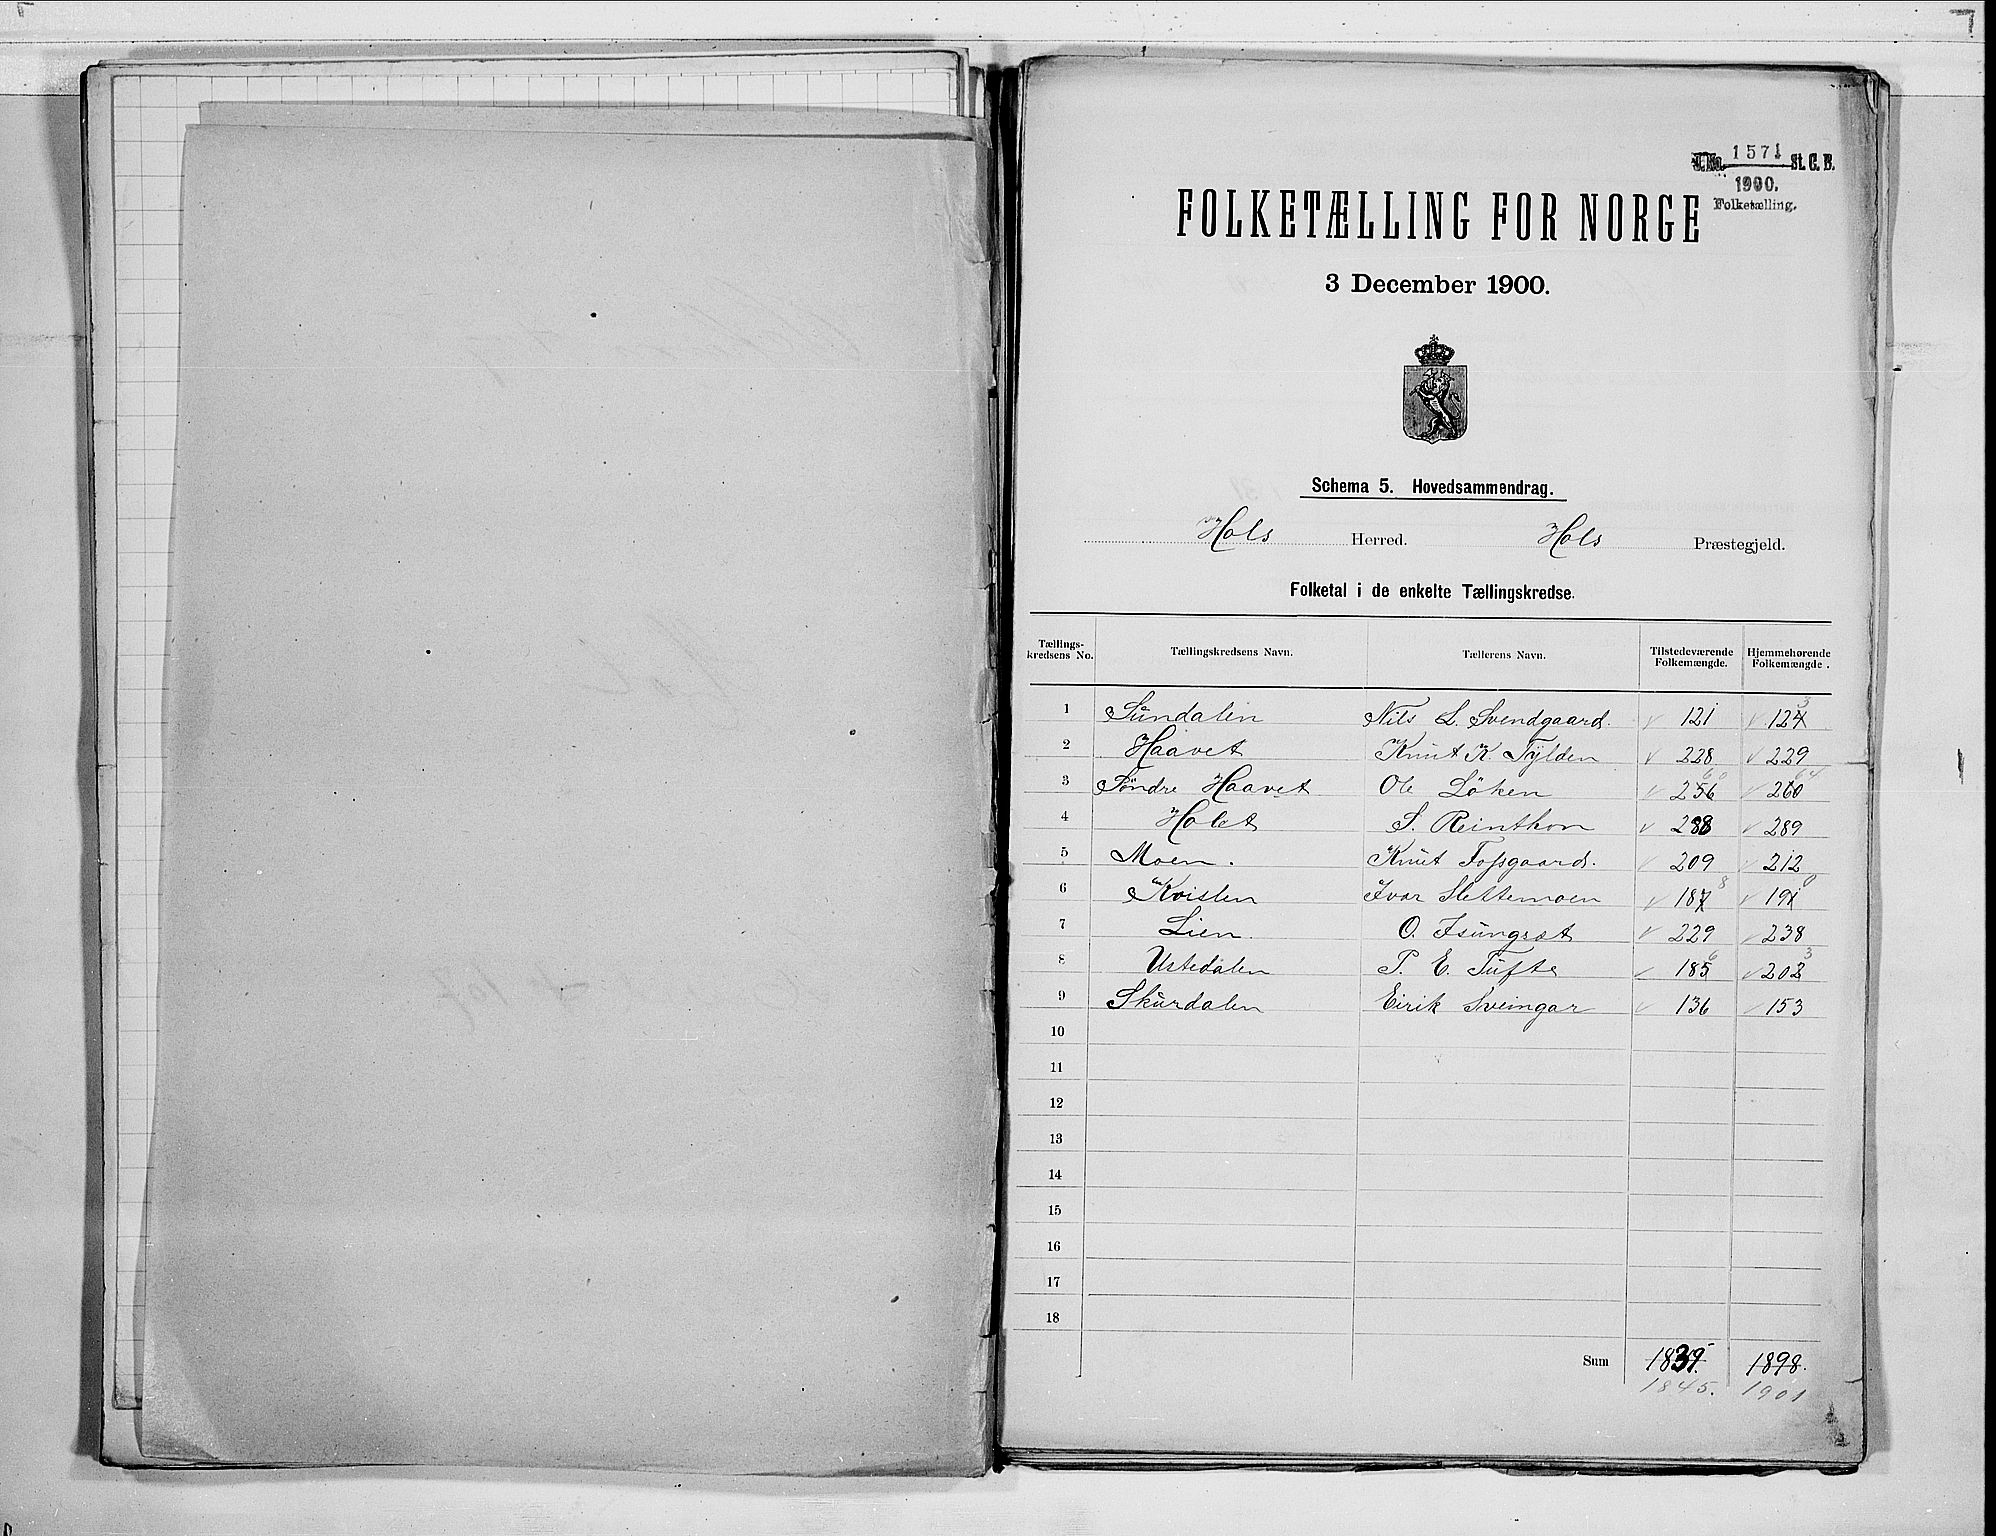 J.No. 1571 St. C. B.
1900.
Folketælling.
FOLKETÆLLING FOR NORGE
3 December 1900.
Schema 5. Hovedsammendrag.
Hols Herred. Hols Præstegjeld.
Folketal i de enkelte Tællingskredse.
Tællings-kredsens No. Tællingskredsens Navn. Tællerens Navn. Tilstedeværende Folkemængde. Hjemmehørende Folkemængde.
1 Sundalen Nils L. Svendgaard. 121 124 3
2 Haavet Knut K. Tylden 228 229
3 Søndre Haavet Ole Löken 256 60 260 64
4 Holet S. Reinton 288 289
5 Moen. Knut Fossgaard. 209 212
6 Kvislen Ivar Slettemoen 187 8 191 0
7 Lien. O. 229 238
8 Ustedalen P. E. Tufte 185 6 202 3
9 Skurdalen Eirik Sveingar 136 153
10
11
12
13
14
15
16
17
18
Sum 1839. 1898.
1845. 1901